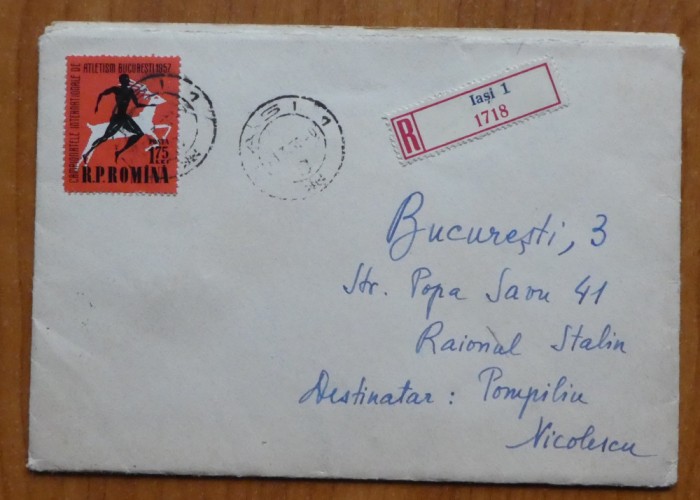 CAMPIONATELE INTERNATIONALE DE ATLETISM BUCUREŞTI 1957
POSTA
175
R.P.ROMÎNA
IAŞI 1
R
Iaşi 1
1718
Bucureşti, 3
Str. Popa Savu 41
Raionul Stalin
Destinatar : Pompiliu
Nicolescu